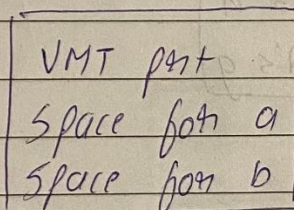 VMT pnt
Space for a
Space for b